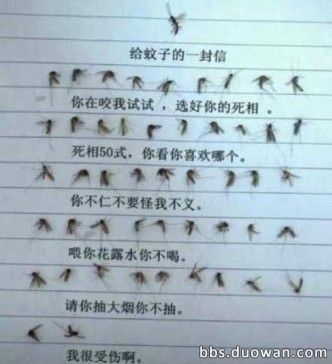 给蚊子的一封信
你在咬我试试，选好你的死相。
死相50式，你看你喜欢哪个。
你不仁不要怪我不义。
喂你花露水你不喝。
请你抽大烟你不抽。
我很受伤啊。
bbs.duowan.com